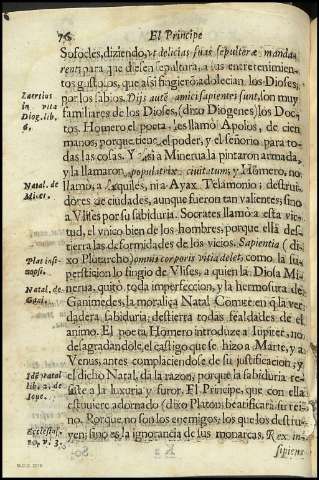 76 El Principe
Sofocles, diziendo, vt delicias suas sepulteræ manda-
rent; para que diesen sepultura, a las entretenimien-
tos gustosos, que assi fingierõ adolecian los Dioses;
por los sabios. Dijs autẽ amici sapientes sunt, son muy
familiares de los Dioses, (dixo Diogenes) los Doc-
tos. Homero el poeta, les llamò Apolos, de cien
manos; porque tiene el poder, y el señorio para to-
das las cosas. Y assi a Minerua la pintaron armada,
y la llamaron, populatrix ciuitatum; y Homero, no
llamò, a Aquiles, ni a Ayax Telamonio; destrui-
dores de ciudades, aunque fueron tan valientes; sino
a Vlises por su sabiduria. Socrates llamò a esta vir-
tud, el vnico bien de los hombres, porque ella des-
tierra las deformidades de los vicios. Sapientia (di-
xo Plutarcho) omnis corporis vitia delet; como la su-
persticion lo fingio de Vlises, a quien la Diosa Mi-
nerua, quitò toda imperfeccion, y la hermosura de
Ganimedes, la moraliça Natal Comite: en q̃ la ver-
dadera sabiduria, destierra todas fealdades de el
animo. El poeta Homero introduze a Iupiter, no
desagradandole, el castigo que se hizo a Marte, y a
Venus, antes complaciendose de su justificacion; y
el dicho Natal, dà la razon, porque la sabiduria re-
siste a la luxuria y furor. El Principe, que con ella
estuuiere adornado (dixo Platon) beatificarà su rei-
no. Porque no son los enemigos, los que los destru-
yen; sino es la ignorancia de sus monarcas. Rex in-
sipiens
Laertius
in vita
Diog. lib.
6.
Natal. de
Miner.
Plat. insi-
nopsi.
Natal. de
Gani.
Idẽ natal
lib. 2. de
Ioue.
Ecclesias.
10. v. 3.